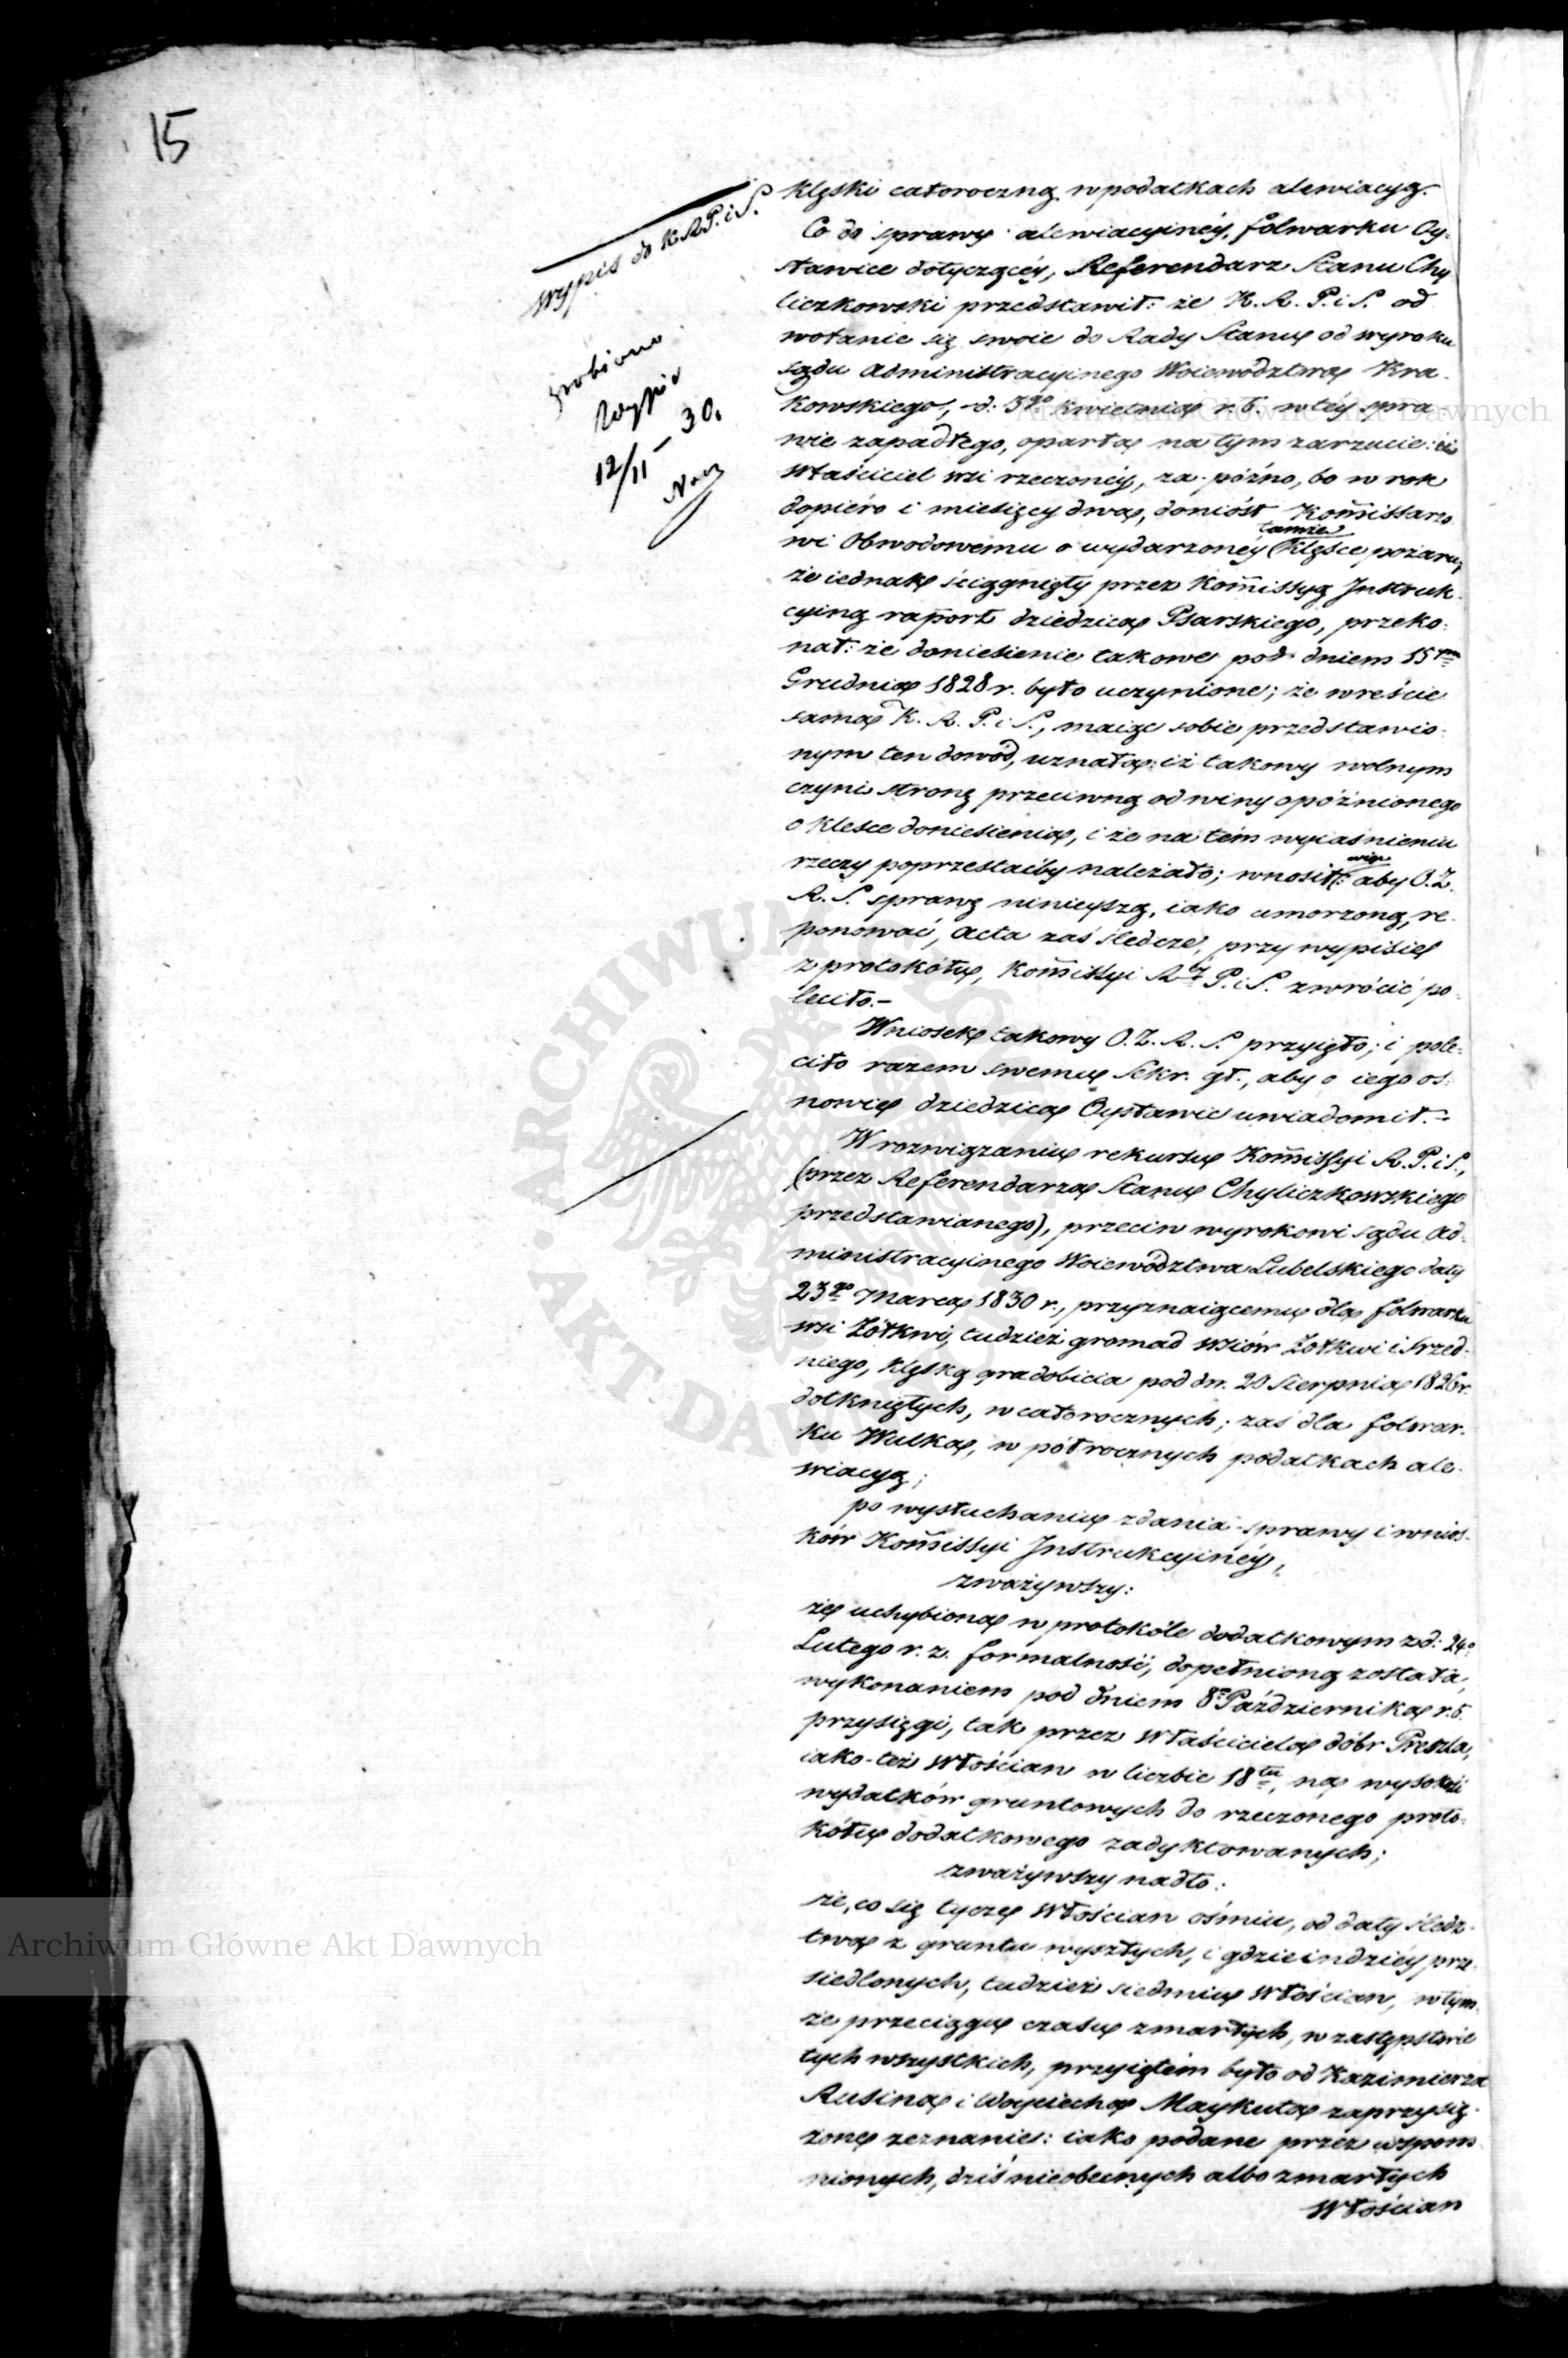 15
Wypis do K.R.P.i S.
zrobiono
Wypis
12/11 30.
klęski całoroczną w podatkach alewiacyą.
Co do sprawy alewiacyinéy, folwarku Oy-
sławice dotyczącéy, Referendarz Stanu Chy
liczkowski przedstawił: że K. R. P. i S. od
wołanie się swoie do Rady Stanu od wyroku
sądu administracyinego Woiewództwa Kra-
kowskiego, d: 3go kwietnia r. b. w téy spra-
wie zapadłego, oparła na tym zarzucie: iż
właściciel wsi rzeczonéy, za-późno, bo w rok
dopiéro i miesięcy dwa, doniósł Kom̄issarzo
wi Obwodowemu o wydarzonéy tamże klęsce pożaru,
że iednak ściągnięty przez Kom̄issyą Instruk-
cyiną raport dziedzica Psarskiego, przeko-
nał: że doniesienie takowe pod dniem 15m
Grudnia 1828 r. było uczynione; że wreście
sama K. R. P. i S., maiąc sobie przedstawio-
nym ten dowód, uznała: iż takowy wolnym
czyni stronę przeciwną od winy opóźnionego
o klesce doniesienia, i że na tém wyiaśnieniu
rzeczy poprzestaćby należało; wnosił więc: aby O. Z.
R. S. sprawę ninieyszą, iako umorzoną, re-
ponować, acta zaś śledcze, przy wypisie
z protokółu, Kom̄issyi R. P. i S. zwrócić po-
leciło.-
Wniosek takowy O. Z. R. S. przyięło; i pole-
ciło razem swemu Sekr. gł., aby o iego os-
nowie dziedzica Oysławic uwiadomił.-
W rozwiązaniu rekursu Kom̄issyi R. P. i S.,
(przez Referendarza Stanu Chyliczkowskiego
przedstawianego), przeciw wyrokowi sądu ad-
ministracyinego Woiewództwa Lubelskiego daty
23go Marca 1830 r., przyznaiącemu dla folwarku
wsi Żółkwi, tudzież gromad wsiów Żółkwi i Śred-
niego, klęską gradobicia pod dn. 20 Sierpnia 1826 r.
dotkniętych, w całorocznych; zaś dla folwar-
ku Wulka, w półrocznych podatkach ale-
wiacyą;
po wysłuchaniu zdania-sprawy i wnios-
ków Kom̄issyi Instrukcyinéy,
zważywszy:
że uchybiona w protokóle dodatkowym z d: 24o
Lutego r. z. formalność, dopełnioną została,
wykonaniem pod dniem 8o Października r. b.
przysięgi, tak przez właściciela dóbr Preszla,
iako-też włościan w liczbie 18tu, na wysokość
wydatków gruntowych do rzeczonego proto-
kółu dodatkowego zadyktowanych;
zważywszy nadto:
że, co się tycze włościan ośmiu, od daty śledz-
twa z gruntu wyszłych, i gdzieindziéy prze-
siedlonych, tudzież siedmiu włościan, w tym-
że przeciągu czasu zmarłych, w zastępstwie
tych wszystkich, przyiętém było od Kazimierza
Rusina i Woyciecha Maykuta zaprzysię-
żone zeznanie: iako podane przez wspom-
nionych, dziś nieobecnych albo zmarłych
włościan
Archiwum Główne Akt Dawnych
Archiwum Główne Akt Dawnych
ARCHIWUM GŁÓWNE
AKT DAWNYCH